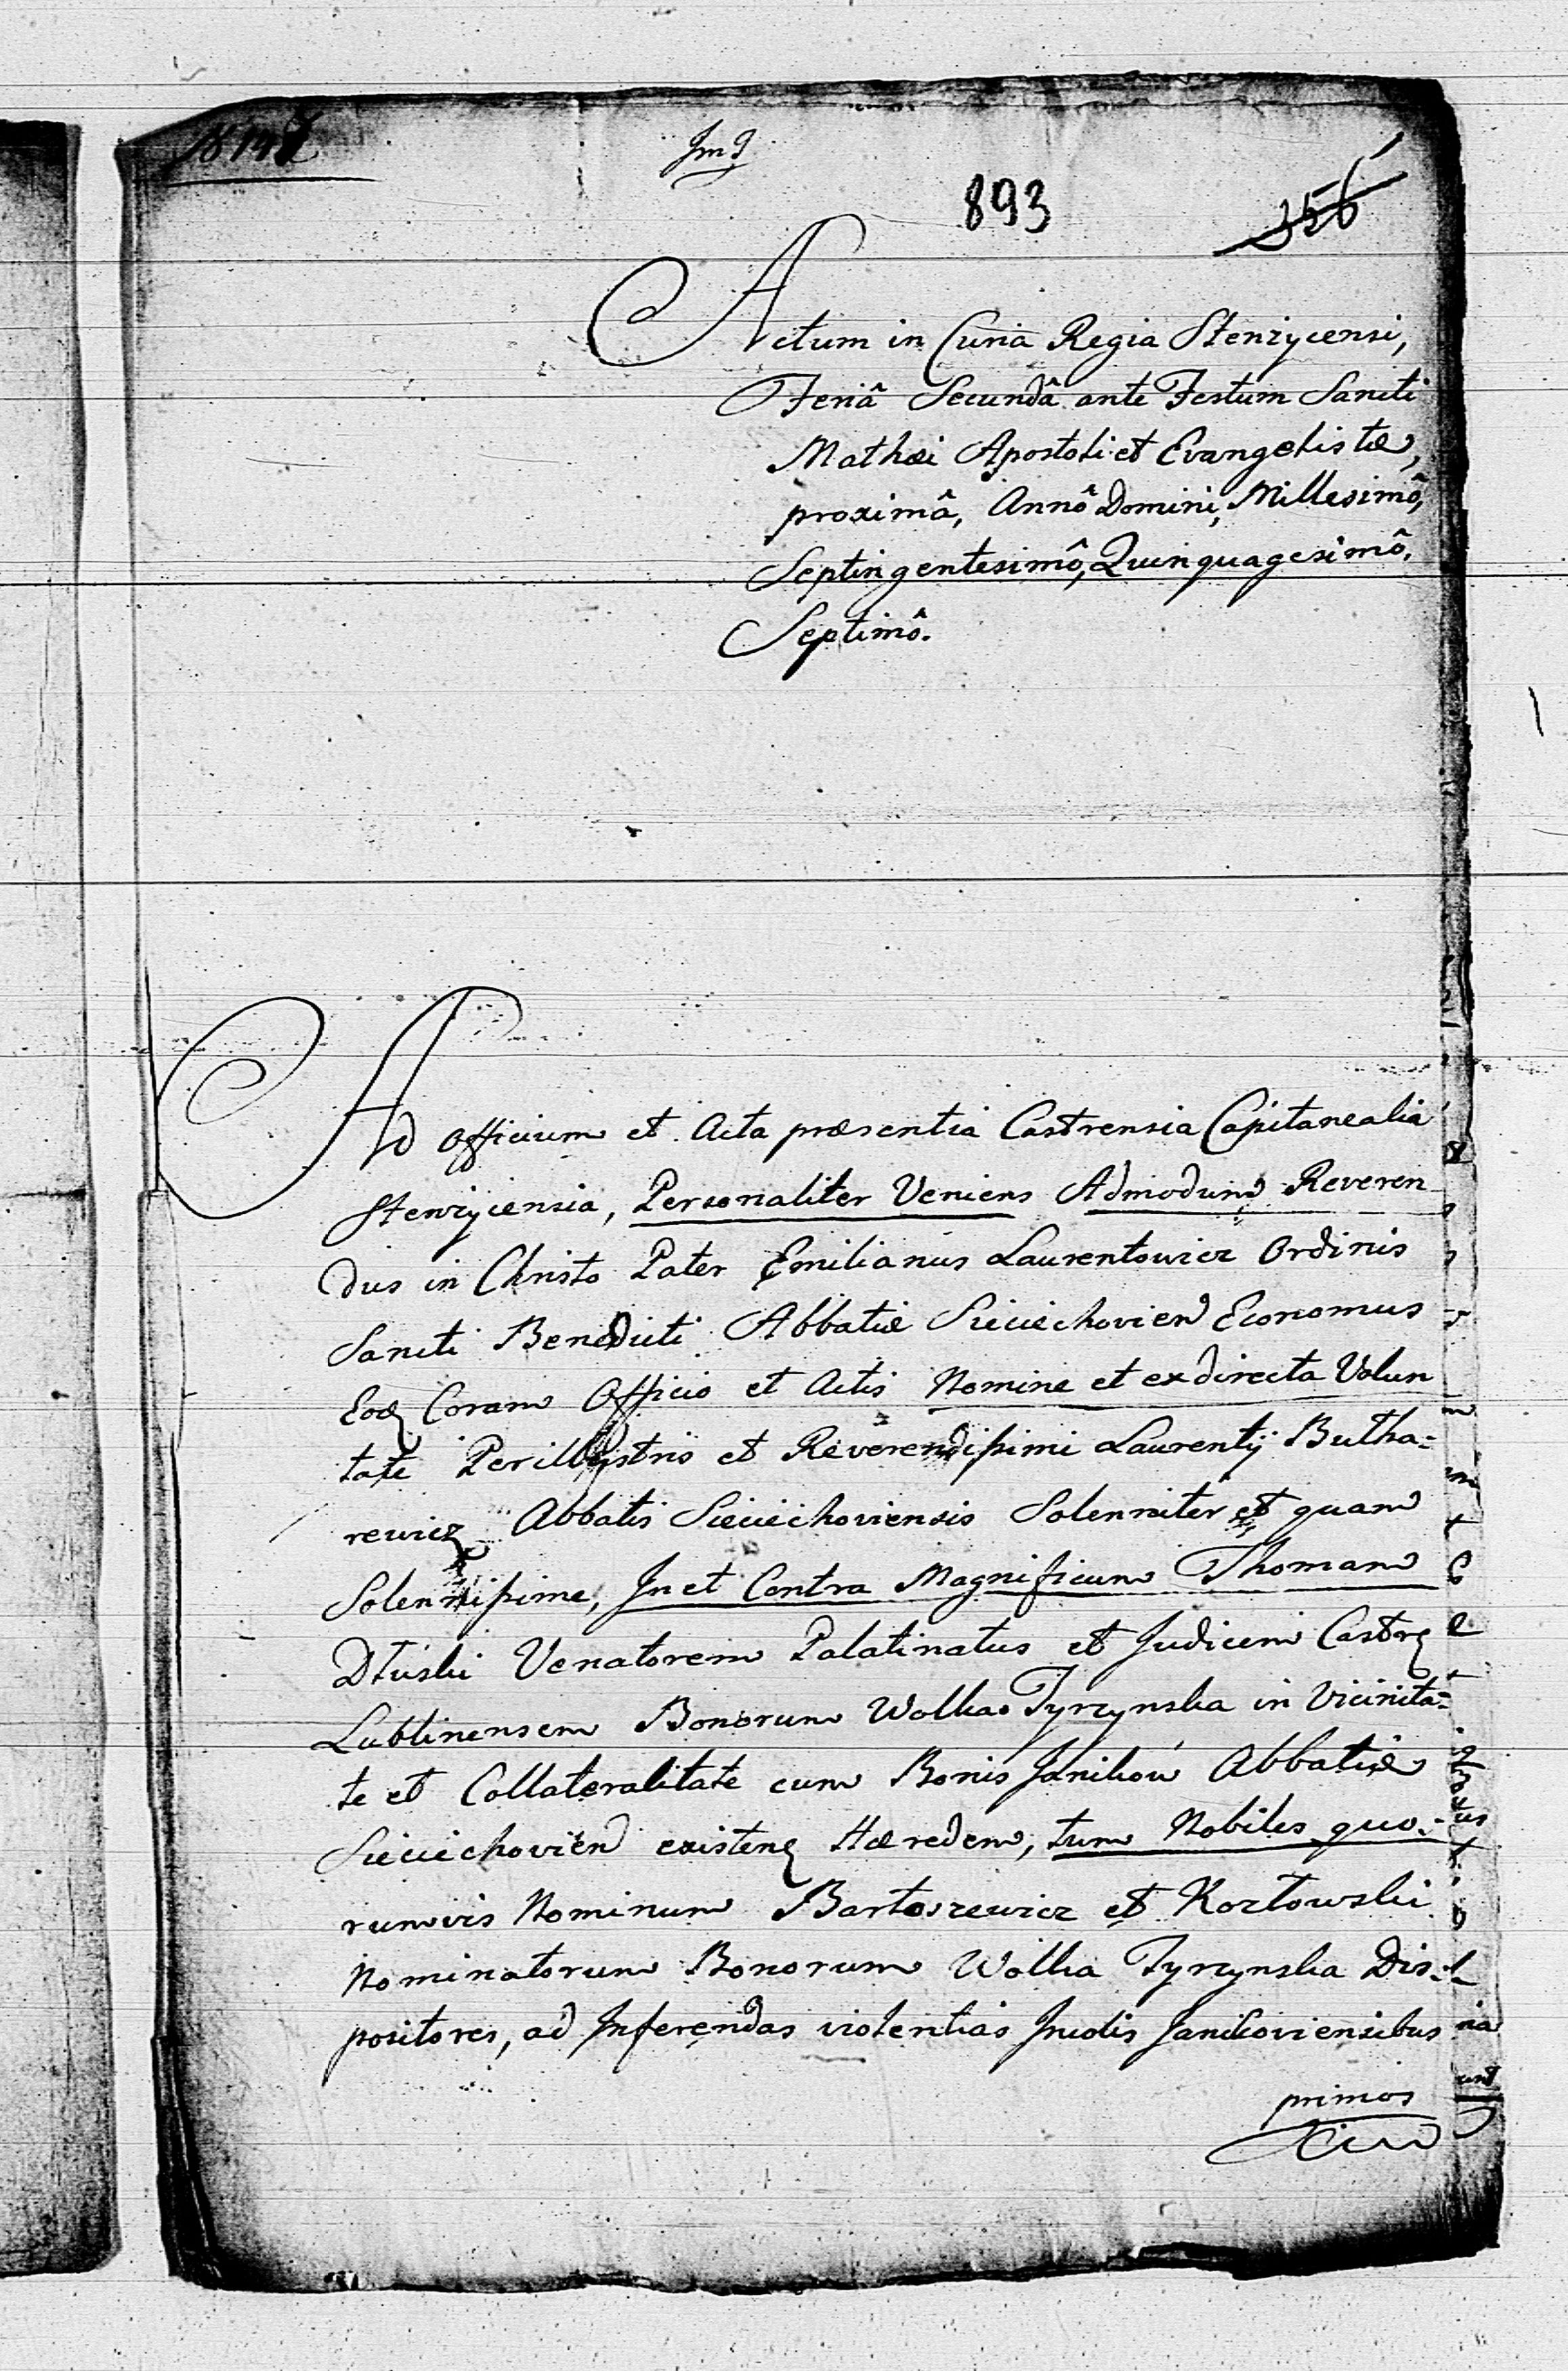 893
356
Actum in Curia Regia Stenzycensi,
Feriâ Secundâ ante Festum Sancti
Mathæi Apostoli et Evangelistæ,
proximâ, Annô Domini, Millesimô,
Septingentesimô, Quinquagesimô,
Septimô.
Ad Officium et Acta præsentia Castrensia Capitanealia
Stenzycensia, Personaliter Veniens Admodum Reveren
dus in Christo Pater Emilianus Laurentowicz Ordinis
Sancti Benedicti Abbatiæ Sieciechovien Economus
Eoq Coram Officio et Actis Nomine et ex directa Volun
tate Perillustris et Reverendissimi Laurentij Butha=
rewicz Abbatis Sieciechoviensis Solenniter et quam
Solennissime, In et Contra Magnificum Thomam
Dłuski Venatorem Palatinatus et Judicem Castrẽ
Lublinensem Bonorum Wolka Tyrzynska in Vicinita=
te et Collateralitate cum Bonis Janikow Abbatiæ
Sieciechovien existenẽ Hæredem, tum Nobiles quo=
rumvis Nominum Bartoszewicz et Kozłowski
Nominatorum Bonorum Wolka Tyrzynska Dis=
positores, ad Inferendas violentias Incolis Janikoviensibus
primos